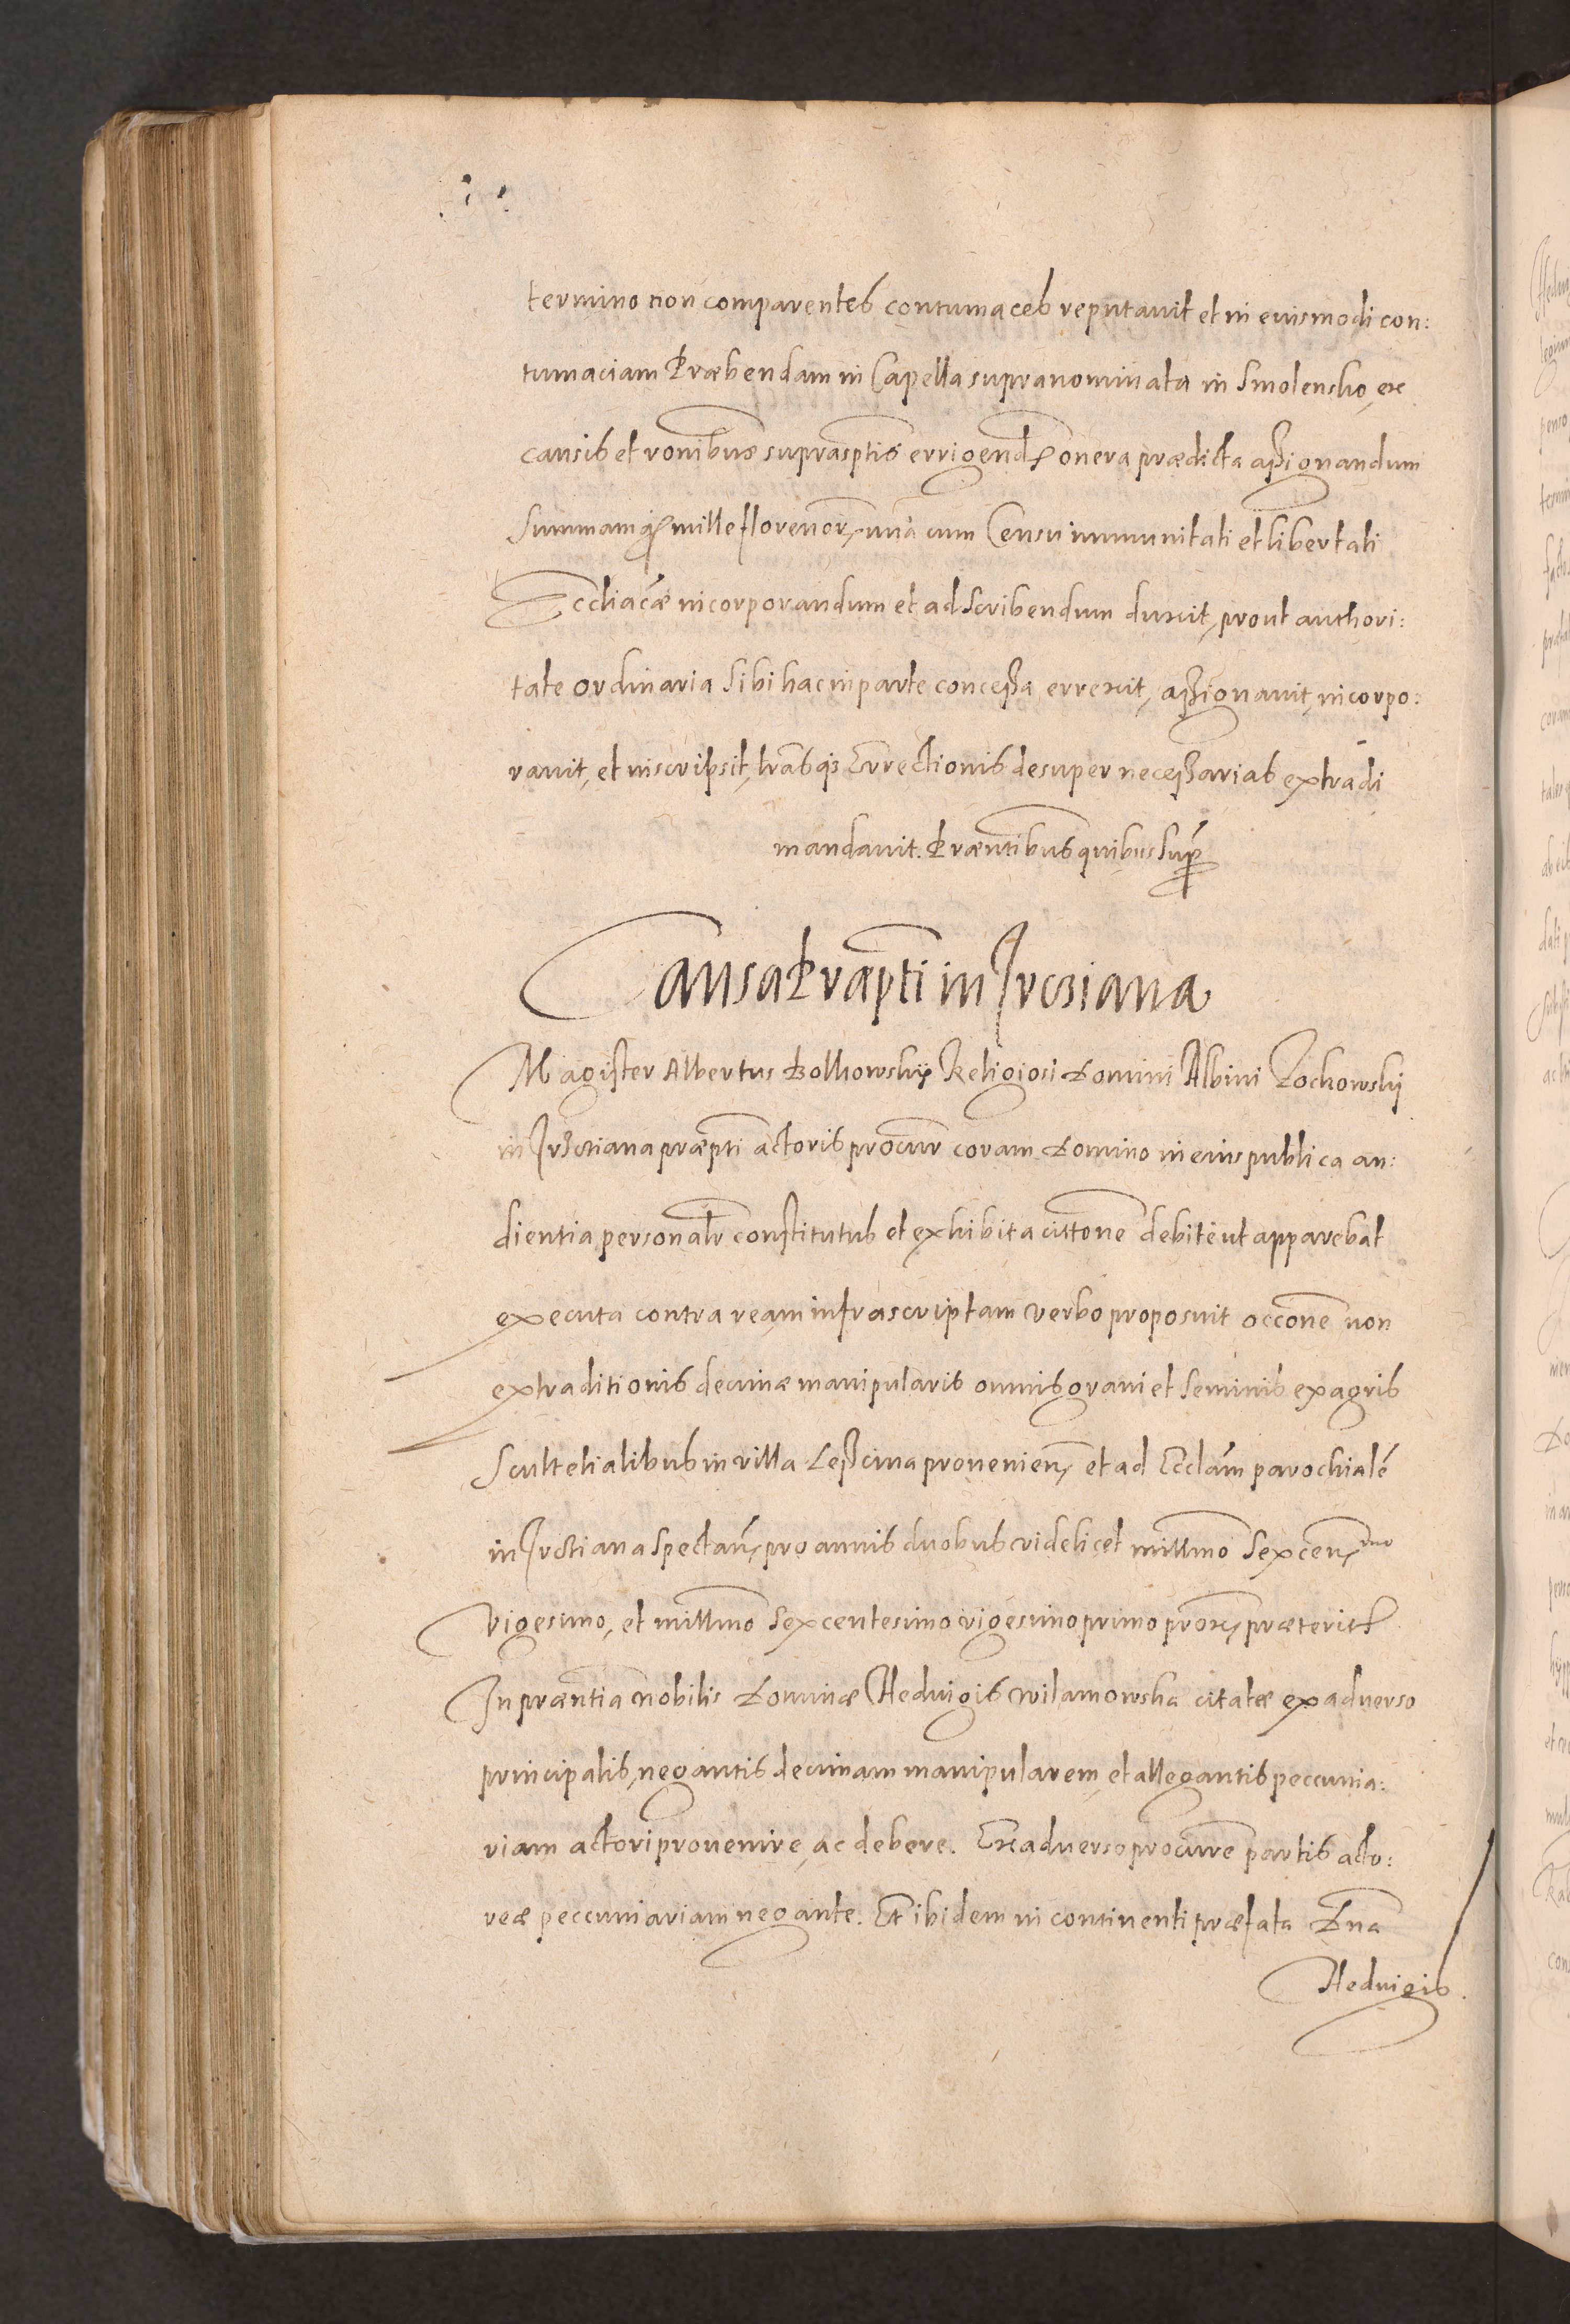 termino non comparentes contumaces reputauit et in euismodi con:
tumaciam Præbendam in Capella supranominata in Smolensko, ex
causis et ronibus suprasptis errigend, onera prædicta assignandum
Summamq mille florenor, una cum Censu immunitati et libertati
Eccliacæ incorporandum et adscribendum duxit, prout authori:
tate ordinaria sibi hac in parte concessa errexit, assignauit, incorpo:
rauit, et inscripsit, lrasq Errectionis desuper necessarias extradi
mandauit. Præntibus quibus supr
Causa Præpti in
Magister Albertus Religiosi Domini Albini
in præpti actoris procur coram Domino in eius publica au:
dientia personalr constitutus et exhibita cittone debite ut apparebat
executa contra ream infrascriptam verbo proposuit occone non
extraditionis decimæ manipularis omnis grani et seminis ex agris
Scultetialibus in villa Lesscina prouenien, et ad Ecclam parochiale
in spectan, pro annis duobus videlicet millmo Sexcen,
vigesimo, et millmo Sexcentesimo vigesimo primo prox, præterit
In præntia Nobilis Dominæ Hedvigis Wilamowska citatæ ex aduerso
principalis, negantis decimam manipularem, et allegantis peccunia:
riam actori prouenire, ac debere. Ex aduerso procure partis acto:
reæ peccuniariam negante. Et ibidem in continenti præfata Dna
Hedvigis.